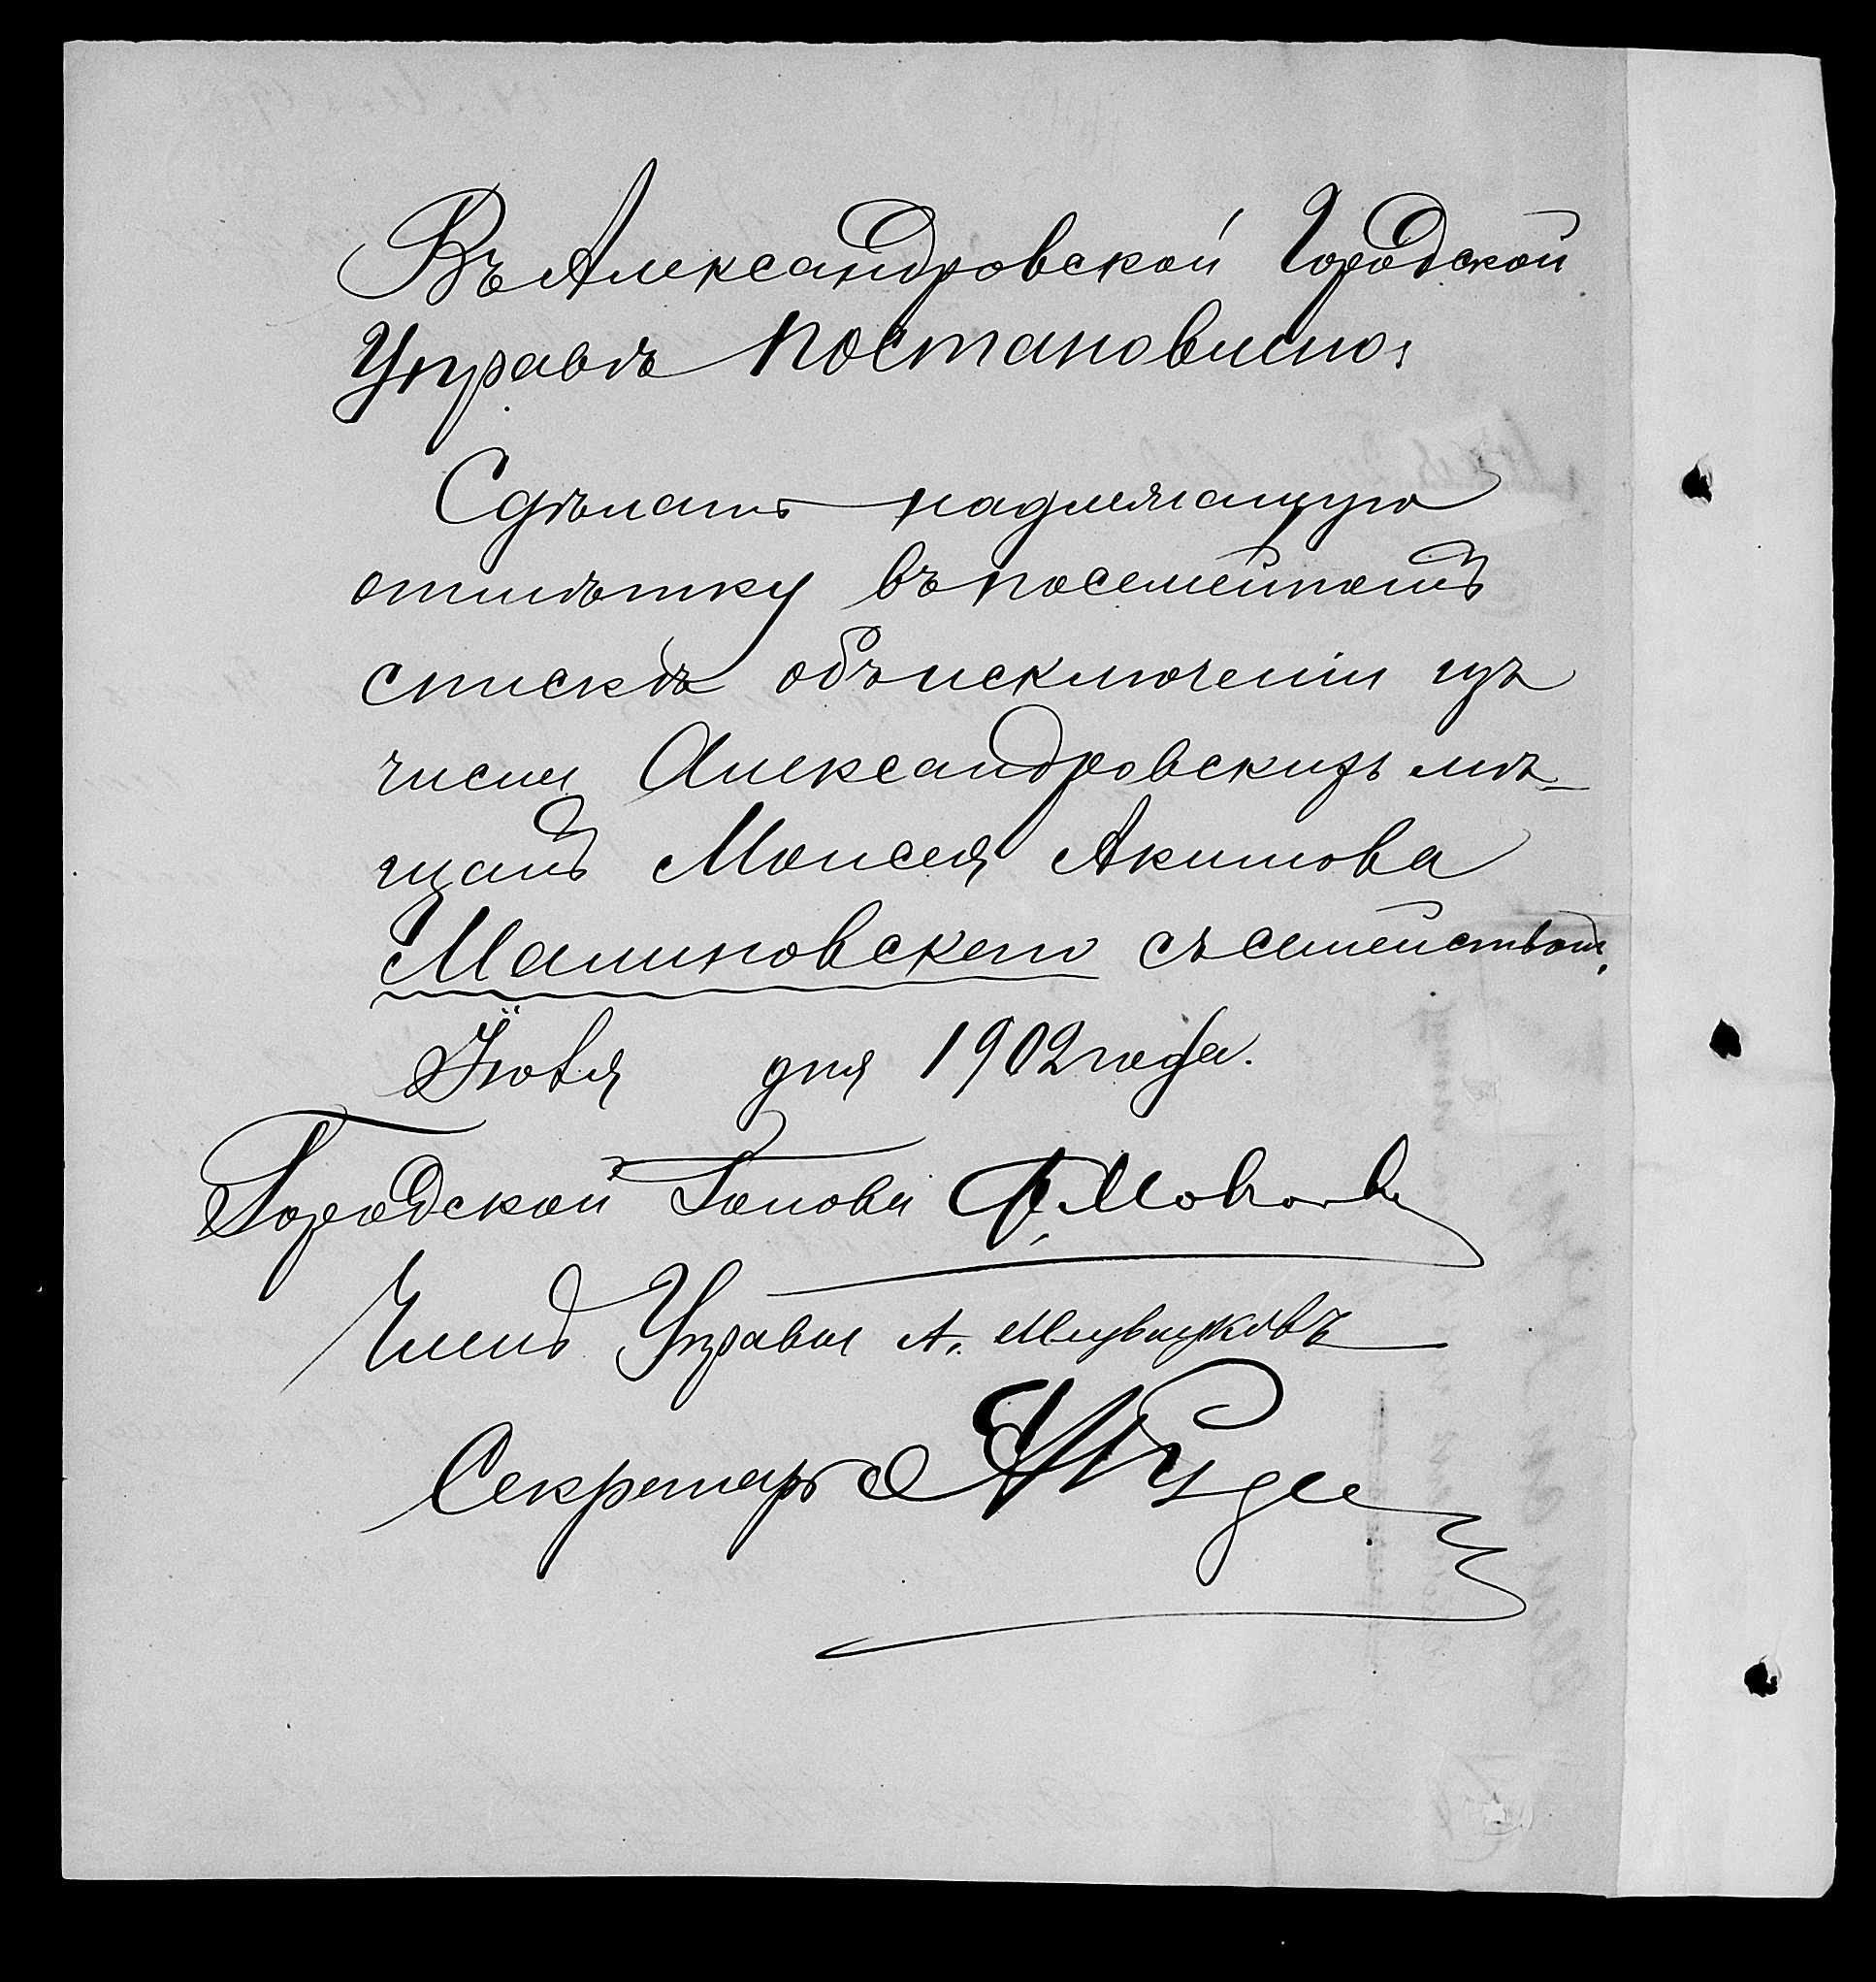 Въ Александровской Городской
Управѣ постановлено:
Сдѣлать надлежащую
отмѣтку въ посемейномъ
спискѣ объ исключеніи изъ
числа Александровскихъ мѣ-
щанъ Моисея Акимова
Малиновскаго съ семействомъ.
Іюля дня 1902 года.
Городской Голова Ф.
Членъ Управы А.
Секретарь